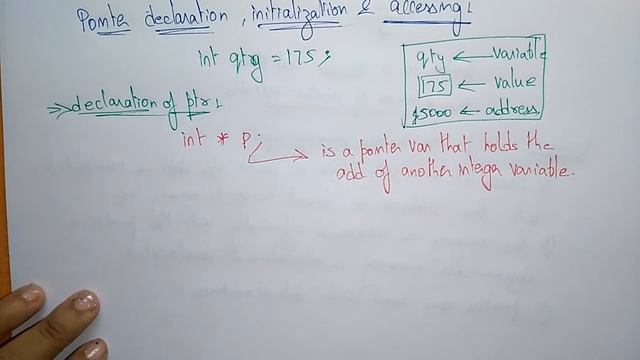 Pointer declaration, initialization & accessing:
int qty = 175;
qty ← variable
175 ← value
5000 ← address
⇒ declaration of ptr:
int * P;
is a pointer var that holds the
add of another integer variable.